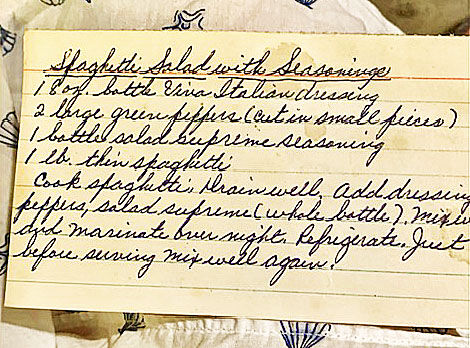 Spaghetti Salad with Seasonings
1 8oz. bottle Viva Italian dressing
2 large green peppers (cut in small pieces)
1 bottle salad supreme seasoning
1 lb. thin spaghetti
Cook spaghetti. Drain well. Add dressing
peppers, salad supreme (whole bottle). Mix
and Marinate over night. Refrigerate. Just
before serving mix well again.